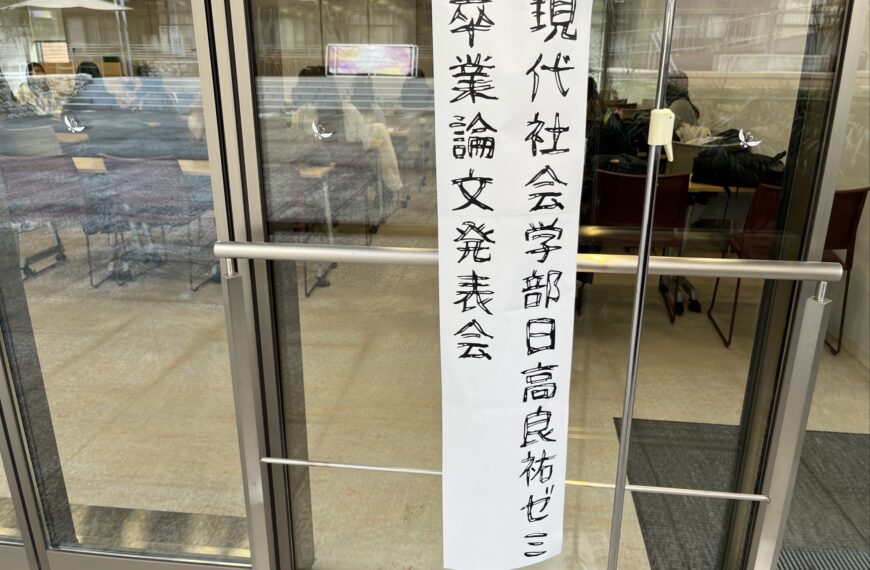 現代社会学部日高良祐ゼミ
卒業論文発表会